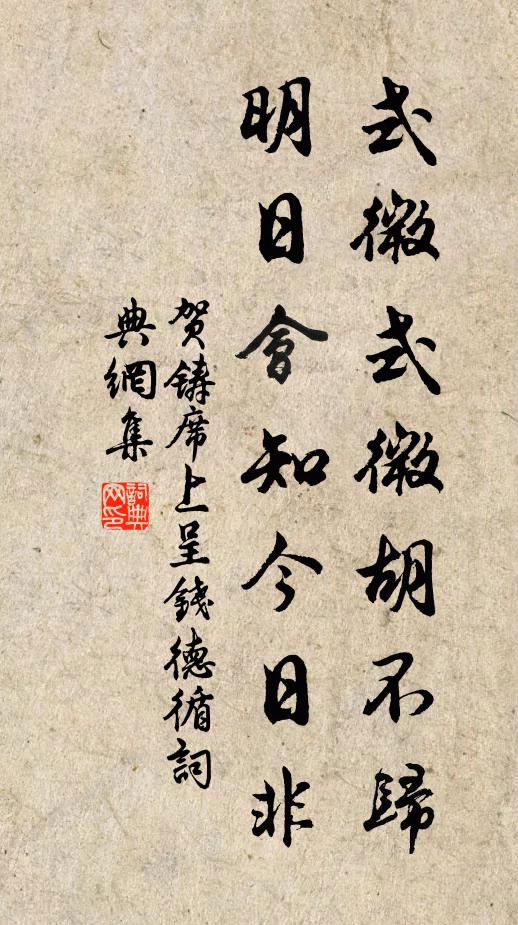 式微式微胡不歸
明日會知今日非
賀鑄席上呈錢德循詞
典網集
詞典網印